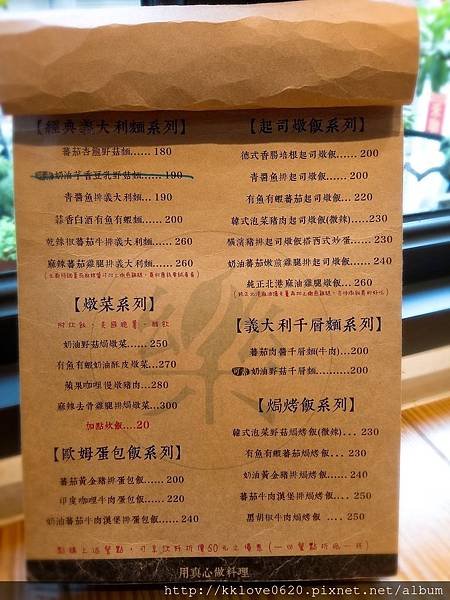 【經典義大利麵系列】
蕃茄杏鮑野菇麵......180
奶油芋香豆乳野菇麵......190
青醬魚排義大利麵...190
蒜香白酒有魚有蝦麵......200
乾辣椒蕃茄牛排義大利麵......260
麻辣蕃茄雞腿排義大利麵......260
【燉菜系列】
奶油野菇燉菜......250
有魚有蝦奶油酥皮燉菜...270
蘋果咖哩慢燉豬肉...280
麻辣去骨雞腿排焗燉菜...300
加點炊飯...20
【歐姆蛋包飯系列】
蕃茄黃金豬排蛋包飯......200
印度咖哩牛肉蛋包飯......220
奶油蕃茄牛肉漢堡排蛋包飯...240
【起司燉飯系列】
德式香腸培根起司燉飯......200
青醬魚排起司燉飯...200
有魚有蝦蕃茄起司燉飯...220
韓式泡菜豬肉起司燉飯(微辣).....230
橫濱豬排起司燉飯搭西式炒蛋......230
奶油蕃茄嫩煎雞腿排起司燉飯...240
純正北港麻油雞腿燉飯...260
【義大利千層麵系列】
蕃茄肉醬千層麵(牛肉)...200
奶油野菇千層麵.........200
【焗烤飯系列】
韓式泡菜野菇焗烤飯(微辣)...230
有魚有蝦蕃茄焗烤飯...230
奶油黃金豬排焗烤飯...240
蕃茄牛肉漢堡排焗烤飯...250
黑胡椒牛肉焗烤飯....250
點購上述餐點，可享飲料折價60元之優惠(一份餐點折抵一杯)
用真心做料理
http://kklove0620.pixnet.net/album